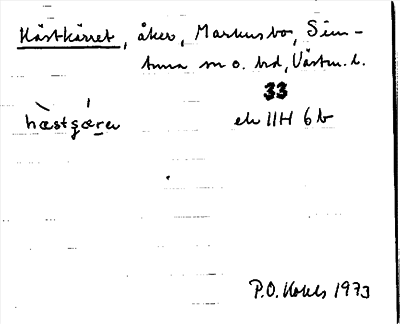 Hästkärret, åker, Markusbo, Sim-
tuna sn o. hd, Västm. l.
33
hæstçærer ek 11H 6b
P.O. Kohls 1973